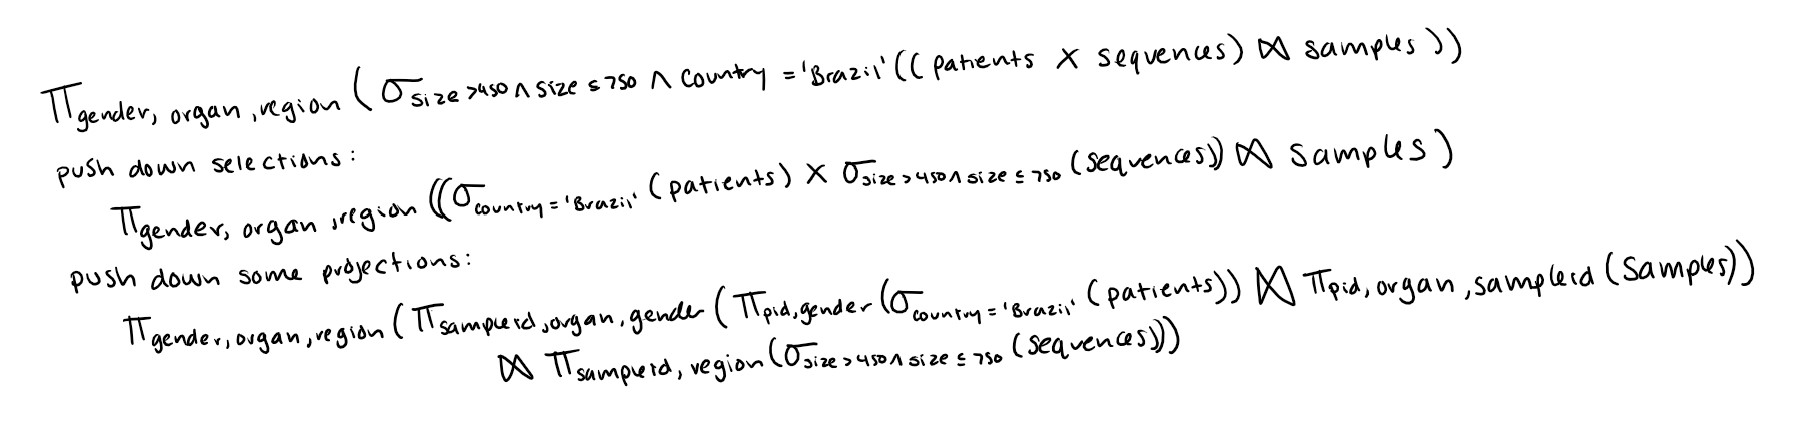 π gender, organ, region (σ size >450 ∧ size ≤ 750 ∧ country = 'Brazil' ((patients X sequences) ⋈ samples))
push down selections:
π gender, organ, region ((σ country = 'Brazil' (patients) X σ size > 450 ∧ size ≤ 750 (sequences)) ⋈ samples)
push down some projections:
π gender, organ, region (π sampleid, organ, gender (π pid, gender (σ country = 'Brazil' (patients)) ⋈ π pid, organ, sampleid (samples))
⋈ π sampleid, region (σ size > 450 ∧ size ≤ 750 (sequences)))